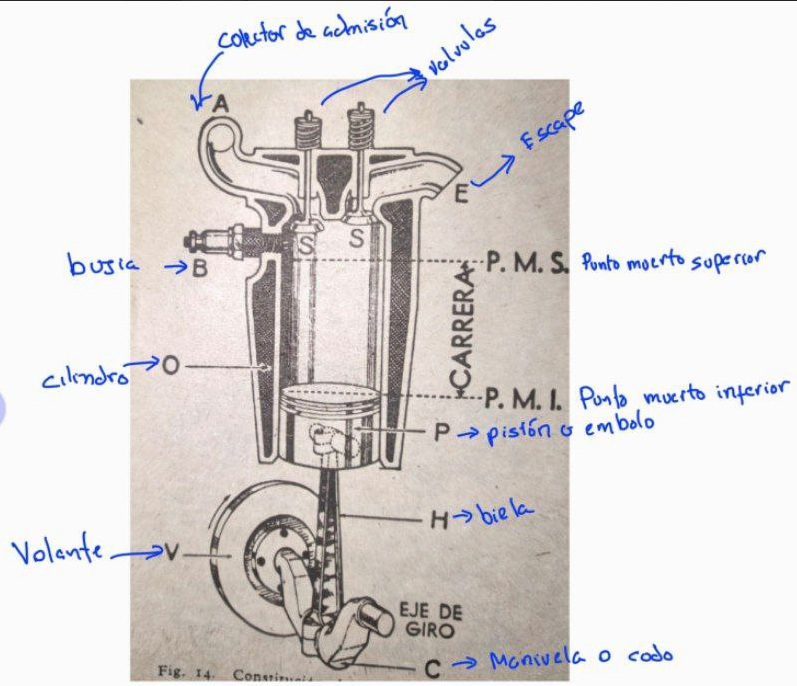 colector de admisión
valvulas
A
Escape
E
S S
busia → B
P. M. S. Punto muerto superior
CARRERA
cilindro → O
P. M. I. Punto muerto inferior
P → pistón o embolo
H → biela
Volante → V
EJE DE
GIRO
C → Manivela o codo
Fig. 14.